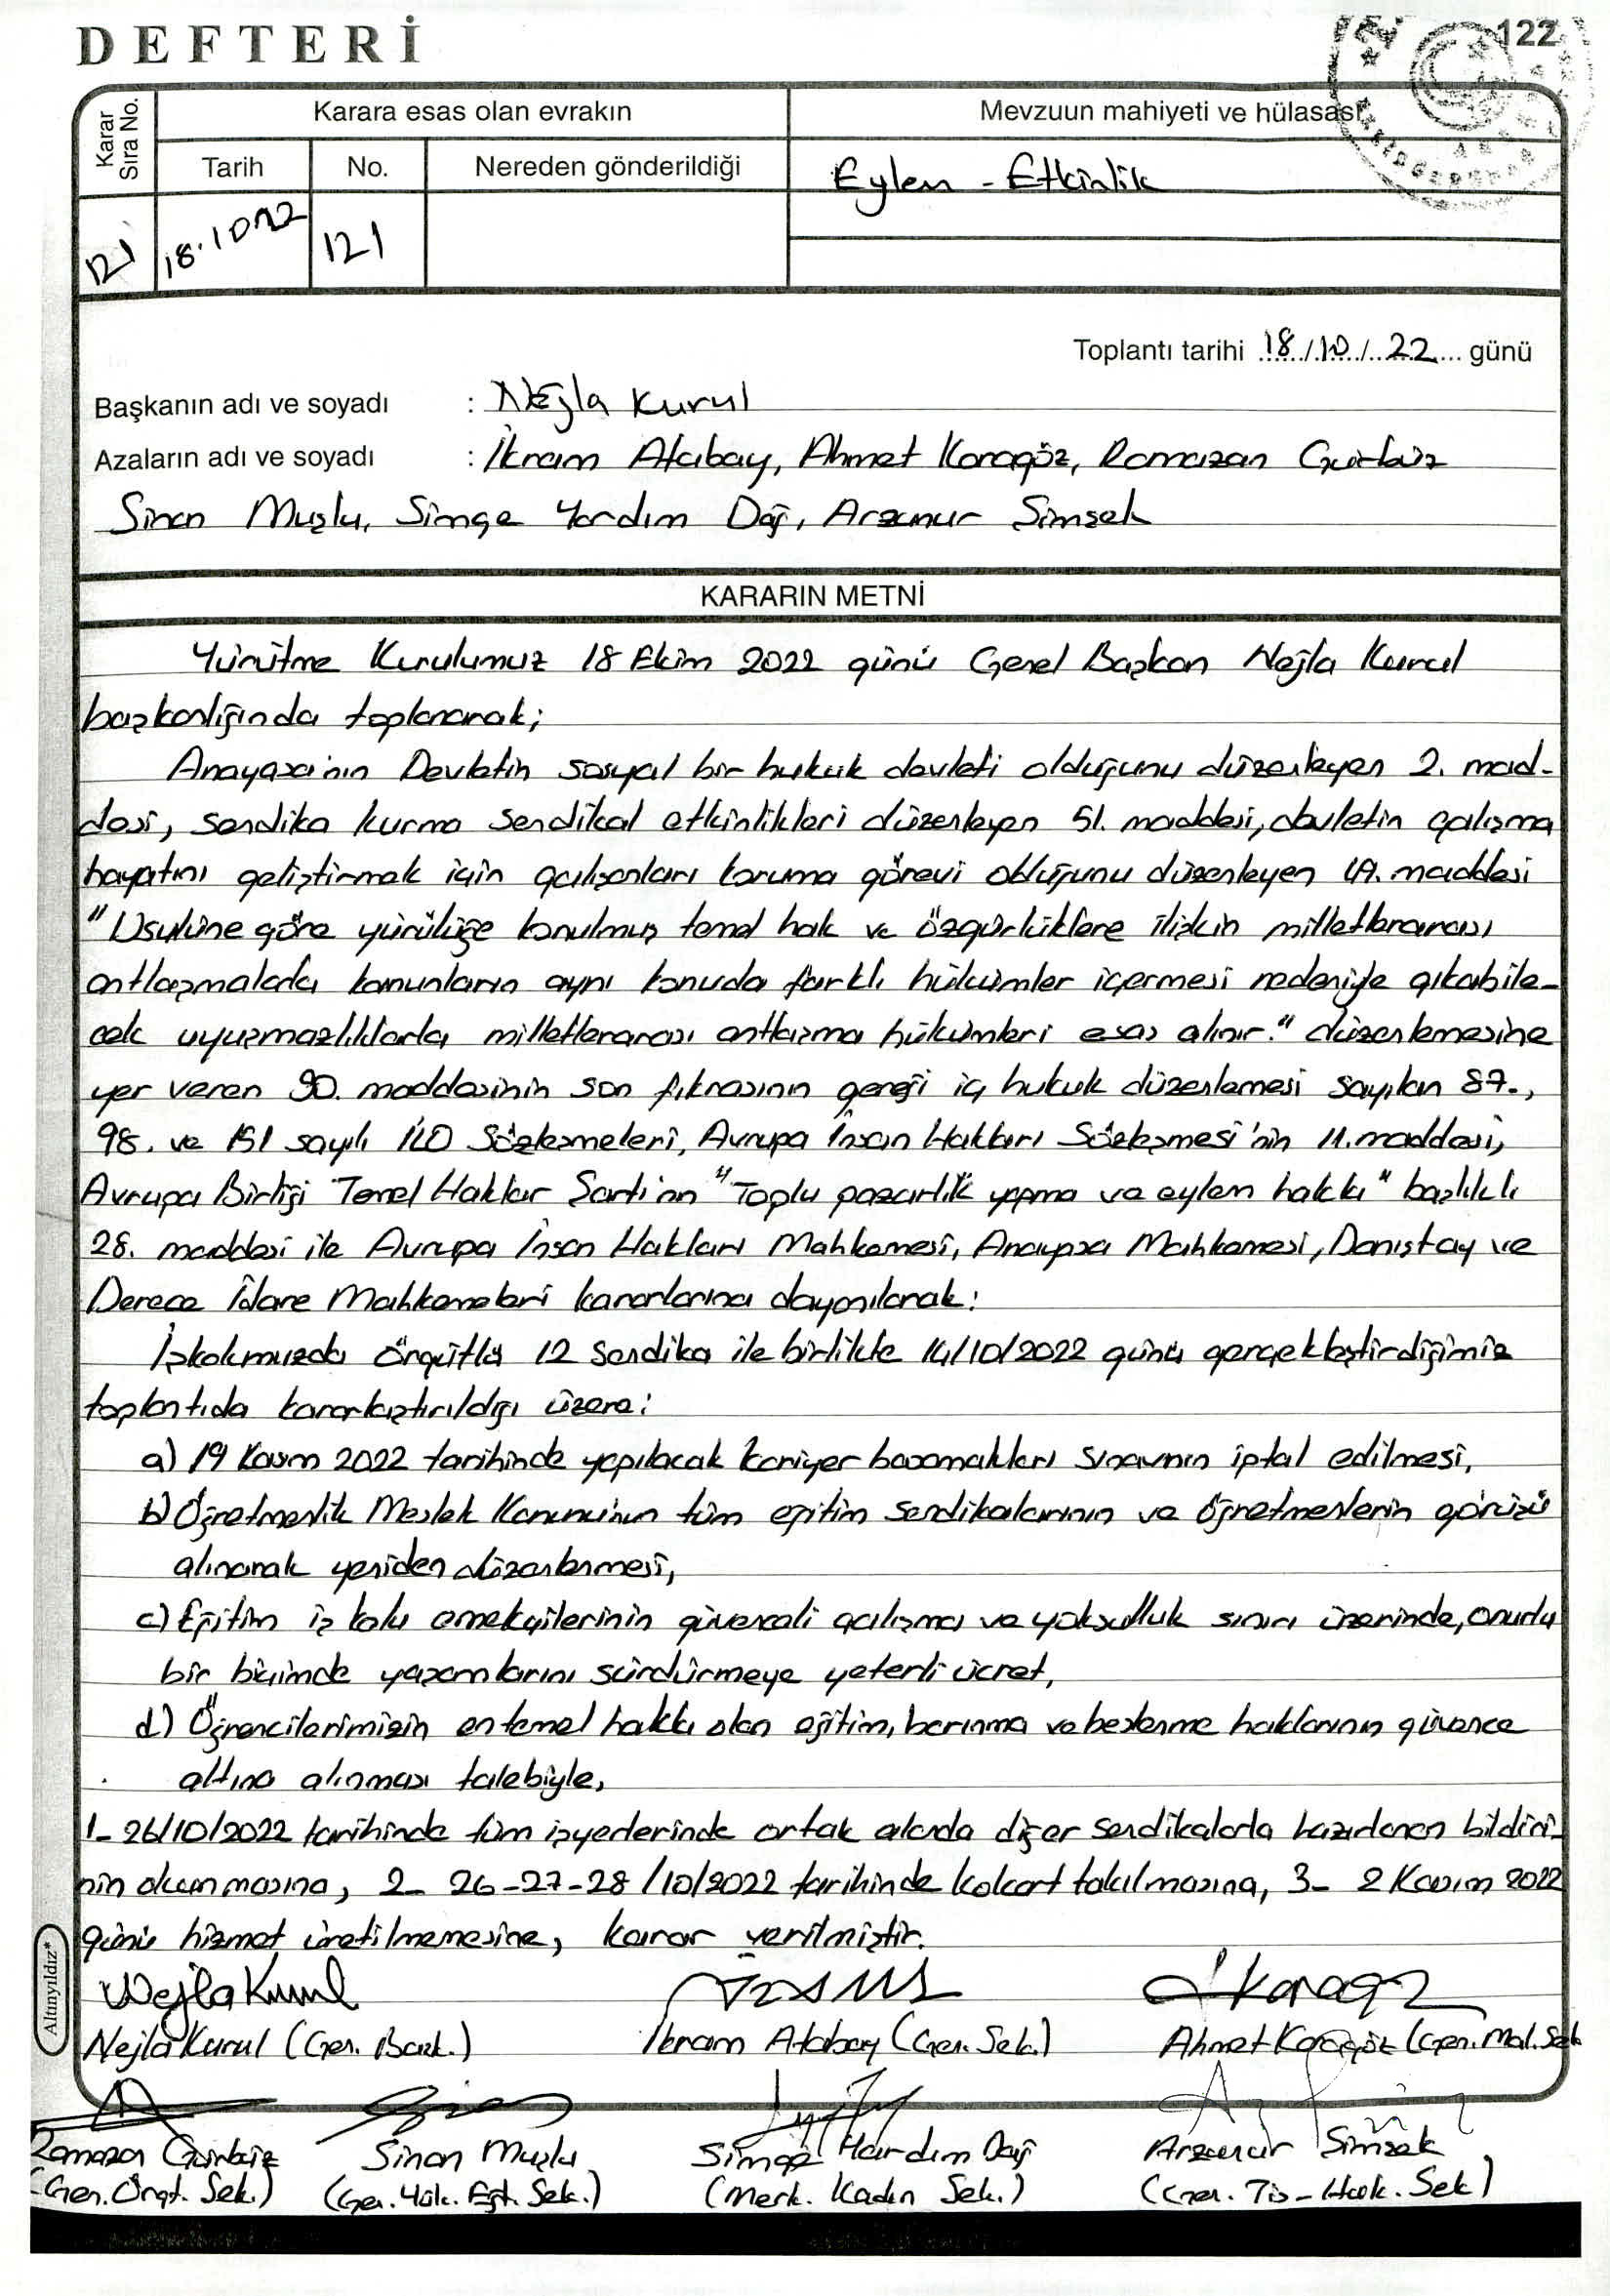 DEFTERİ
122
Karar Sıra No.
Karara esas olan evrakın
Mevzuun mahiyeti ve hülasası
Tarih
No.
Nereden gönderildiği
Eylem - Etkinlik
121
18.10.22
121
Toplantı tarihi 18/10/22 günü
Başkanın adı ve soyadı : Nejla Kurul
Azaların adı ve soyadı : İkram Atabay, Ahmet Karagöz, Ramazan Gürbüz
Sinan Muşlu, Simge Yardım Dağ, Arzunur Şimşek
KARARIN METNİ
Yürütme Kurulumuz 18 Ekim 2022 günü Genel Başkan Nejla Kurul
başkanlığında toplanarak;
Anayasa'nın Devletin sosyal bir hukuk devleti olduğunu düzenleyen 2. mad-
desi, sendika kurma sendikal etkinlikleri düzenleyen 51. maddesi, devletin çalışma
hayatını geliştirmek için çalışanları koruma görevi olduğunu düzenleyen 49. maddesi
"Usulüne göre yürülüğe konulmuş temel hak ve özgürlüklere ilişkin milletlerarası
antlaşmalarla kanunların aynı konuda farklı hükümler içermesi nedeniyle çıkabile-
cek uyuşmazlıklarda milletlerarası antlaşma hükümleri esas alınır." düzenlemesine
yer veren 90. maddesinin son fıkrasının gereği iç hukuk düzenlemesi sayılan 87.,
98. ve 151 sayılı İLO Sözleşmeleri, Avrupa İnsan Hakları Sözleşmesi'nin 11. maddesi,
Avrupa Birliği Temel Haklar Şartı'nın "Toplu pazarlık yapma ve eylem hakkı" başlıklı
28. maddesi ile Avrupa İnsan Hakları Mahkemesi, Anayasa Mahkemesi, Danıştay ve
Derece İdare Mahkemeleri kararlarına dayanılarak;
İşkolumuzda Örgütlü 12 Sendika ile birlikte 14/10/2022 günü gerçekleştirdiğimiz
toplantıda kararlaştırıldığı üzere;
a) 19 Kasım 2022 tarihinde yapılacak kariyer basamakları sınavının iptal edilmesi,
b) Öğretmenlik Meslek Kanunu'nun tüm eğitim sendikalarının ve öğretmenlerin görüşü
alınarak yeniden düzenlenmesi,
c) Eğitim iş kolu emekçilerinin güvenceli çalışma ve yoksulluk sınırı üzerinde, onurlu
bir biçimde yaşamlarını sürdürmeye yeterli ücret,
d) Öğrencilerimizin en temel hakkı olan eğitim, barınma ve beslenme haklarının güvence
altına alınması talebiyle,
1- 26/10/2022 tarihinde tüm işyerlerinde ortak alanda diğer sendikalarla hazırlanan bildiri-
nin okunmasına, 2- 26-27-28/10/2022 tarihinde kokart takılmasına, 3- 2 Kasım 2022
günü hizmet üretilmemesine, karar verilmiştir.
Altınyıldız*
Nejla Kurul
Karagöz
Nejla Kurul (Gen. Başk.)
İkram Atabay (Gen. Sek.)
Ahmet Karagöz (Gen. Mal. Sek
Ramazan Gürbüz
Sinan Muşlu
Simge Yardım Dağ
Arzunur Şimşek
(Gen. Örgt. Sek.)
(Gen. Yük. Eğt. Sek.)
(Merk. Kadın Sek.)
(Gen. Tis-Huk. Sek)